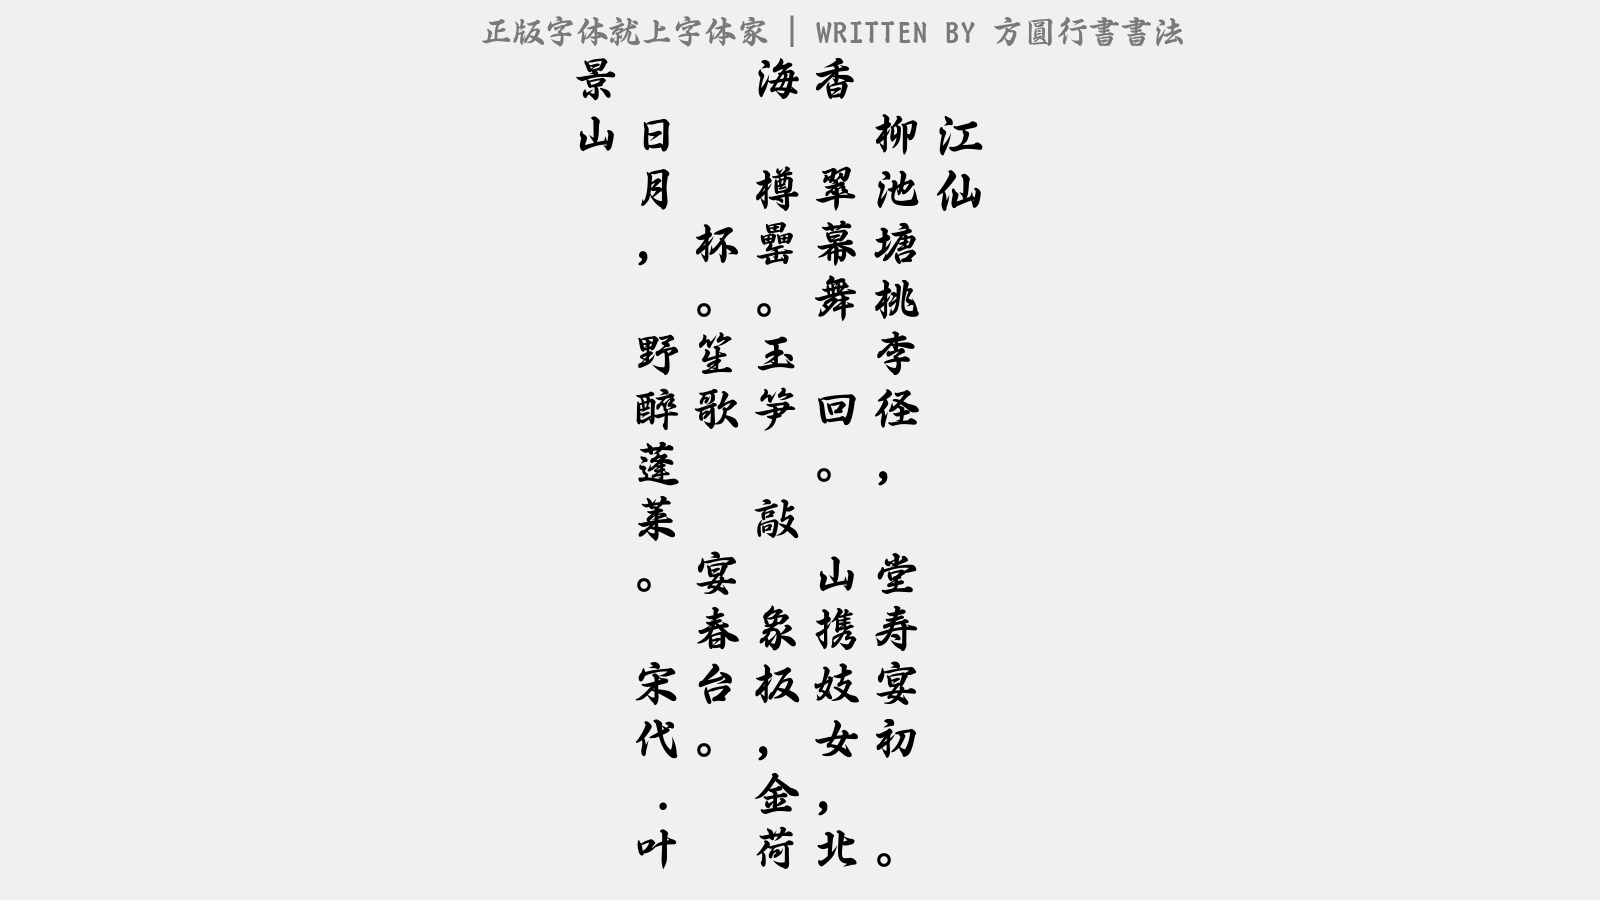 正版字体就上字体家 | WRITTEN BY 方圓行書書法
江仙
柳池塘桃李径，堂寿宴初。
香翠幕舞回。山携妓女，北
海樽罍。玉笋敲象板，金荷
杯。笙歌宴春台。
日月，野醉蓬莱。宋代.叶
景山